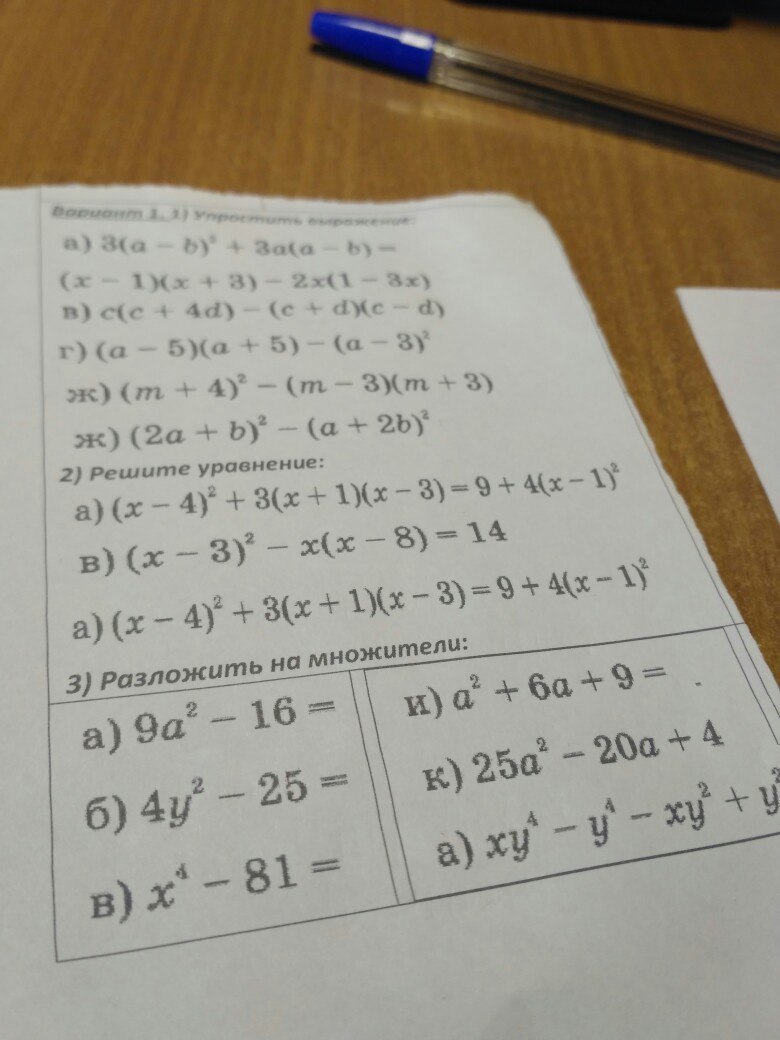 Вариант 1. 1) Упростить выражение:
а) 3(a − b)² + 3a(a − b) =
(x − 1)(x + 3) − 2x(1 − 3x)
в) c(c + 4d) − (c + d)(c − d)
г) (a − 5)(a + 5) − (a − 3)²
ж) (m + 4)² − (m − 3)(m + 3)
ж) (2a + b)² − (a + 2b)²
2) Решите уравнение:
а) (x − 4)² + 3(x + 1)(x − 3) = 9 + 4(x − 1)²
в) (x − 3)² − x(x − 8) = 14
а) (x − 4)² + 3(x + 1)(x − 3) = 9 + 4(x − 1)²
3) Разложить на множители:
а) 9a² − 16 =
б) 4y² − 25 =
в) x⁴ − 81 =
и) a² + 6a + 9 =
к) 25a² − 20a + 4
а) xy⁴ − y⁴ − xy² + y²